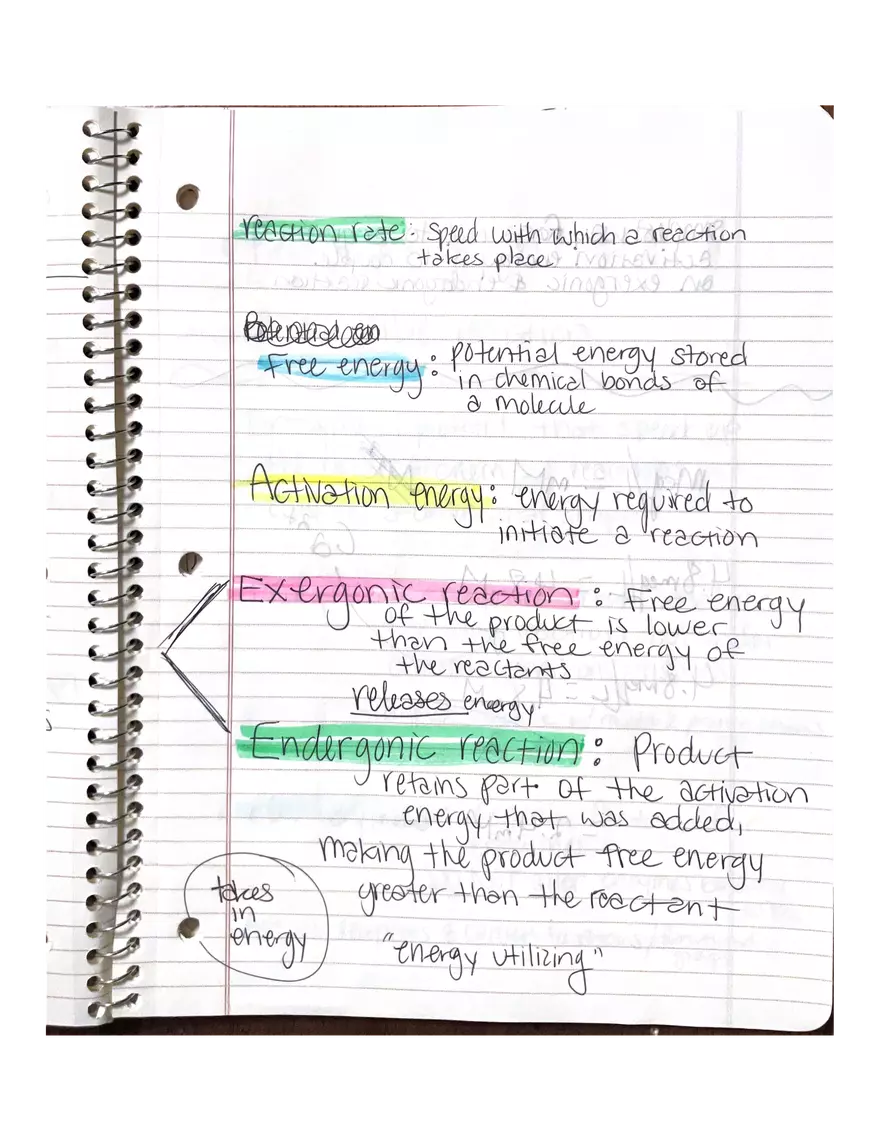 reaction rate: Speed with which a reaction
takes place
Free energy: potential energy stored
in chemical bonds of
a molecule
Activation energy: energy required to
initiate a reaction
Exergonic reaction: Free energy
of the product is lower
than the free energy of
the reactants
releases energy
Endergonic reaction: Product
retains part of the activation
energy that was added,
making the product free energy
greater than the reactant
takes
in
energy
"energy utilizing"